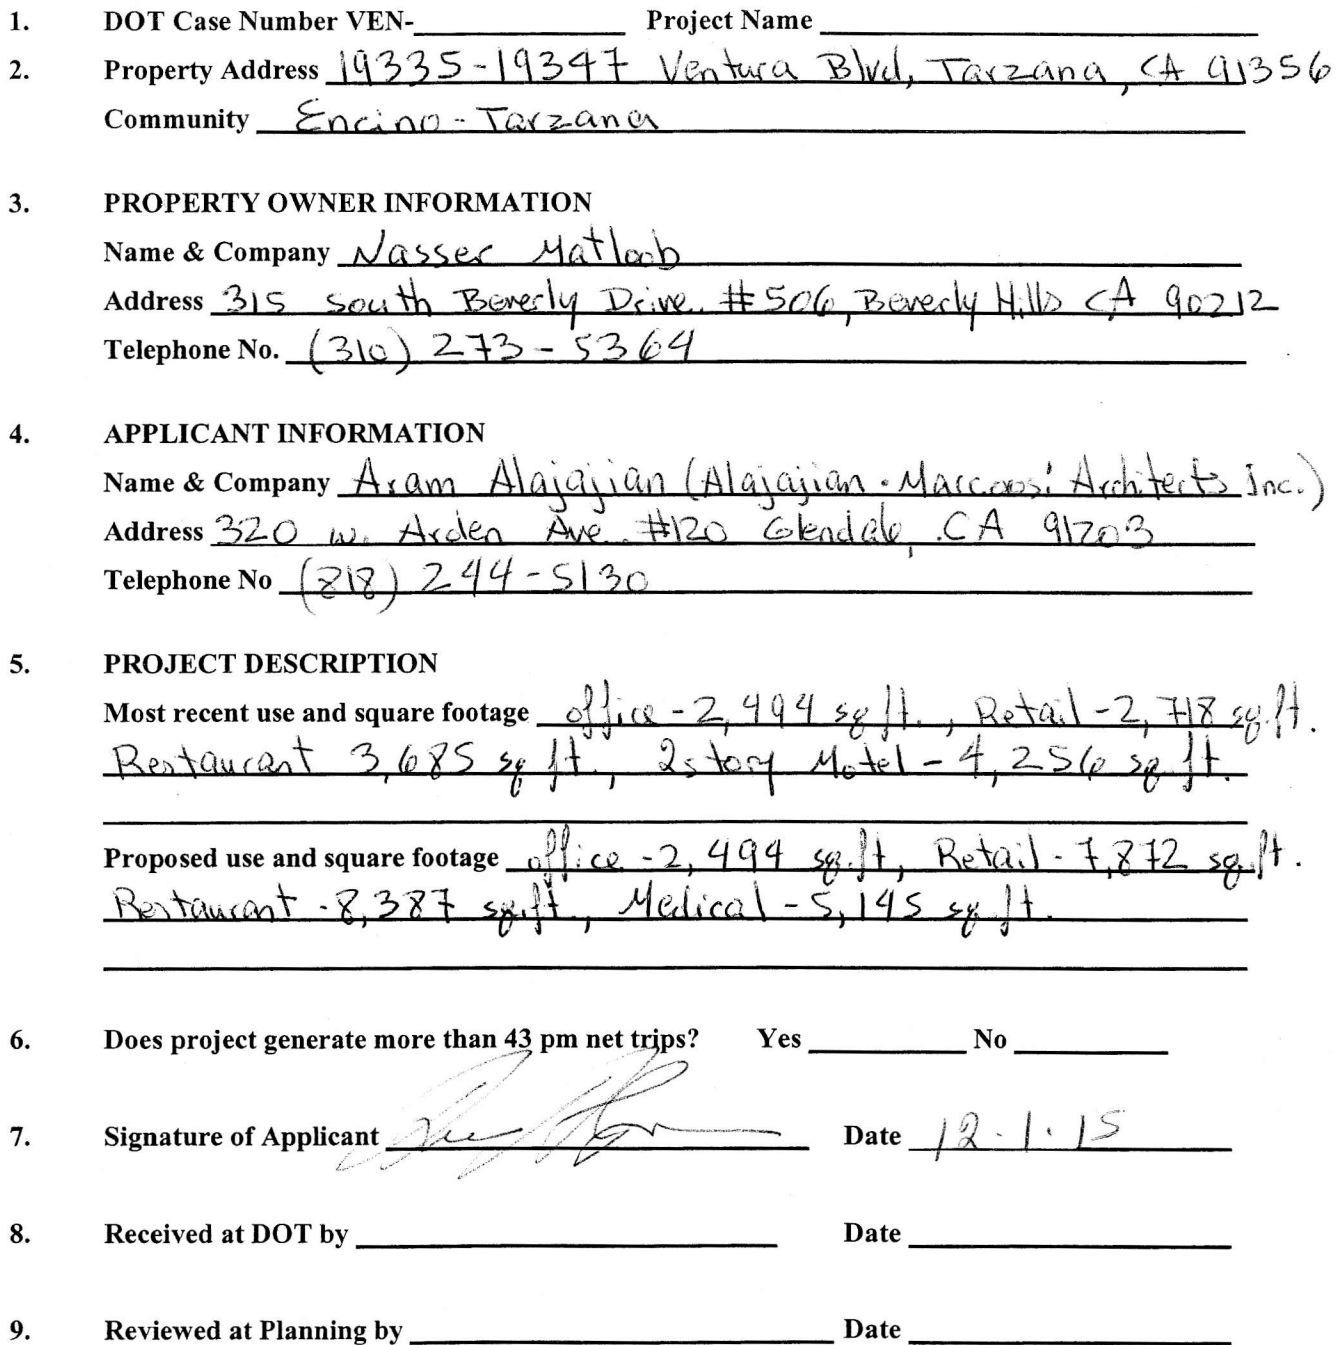 1. DOT Case Number VEN-____________ Project Name ____________
2. Property Address 19335-19347 Ventura Blvd, Tarzana, CA 91356
Community Encino-Tarzana
3. PROPERTY OWNER INFORMATION
Name & Company Nasser Matloob
Address 315 South Beverly Drive. #506, Beverly Hills CA 90212
Telephone No. (310) 273-5364
4. APPLICANT INFORMATION
Name & Company Aram Alajajian (Alajajian-Marcoosi Architects Inc.)
Address 320 w. Arden Ave. #120 Glendale, CA 91203
Telephone No (818) 244-5130
5. PROJECT DESCRIPTION
Most recent use and square footage office - 2,494 sq ft., Retail - 2,718 sq.ft.
Restaurant 3,685 sq ft., 2story Motel - 4,256 sq.ft.
Proposed use and square footage office - 2,494 sq.ft, Retail - 7,872 sq.ft.
Restaurant - 8,387 sq.ft., Medical - 5,145 sq.ft.
6. Does project generate more than 43 pm net trips? Yes ____________ No ____________
7. Signature of Applicant ____________ Date 12.1.15
8. Received at DOT by ____________ Date ____________
9. Reviewed at Planning by ____________ Date ____________